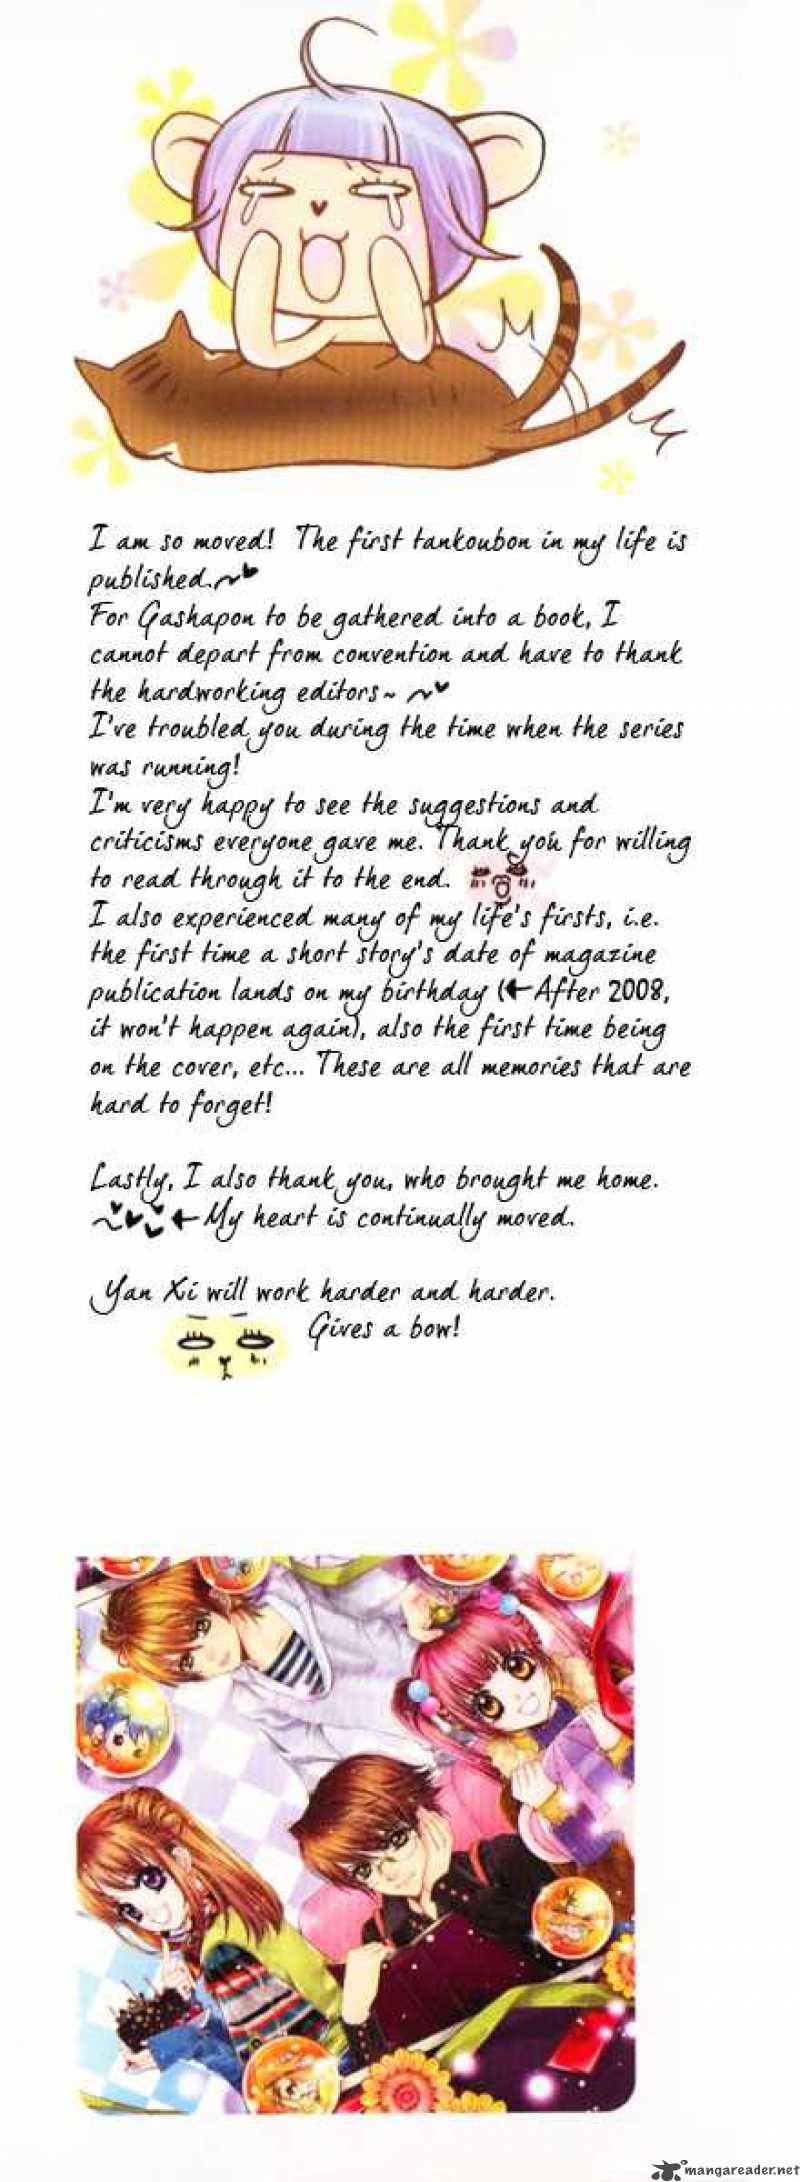 I am so moved! The first tankoubon in my life is
published.~♥
For Gashapon to be gathered into a book, I
cannot depart from convention and have to thank
the hardworking editors~ ~♥
I've troubled you during the time when the series
was running!
I'm very happy to see the suggestions and
criticisms everyone gave me. Thank you for willing
to read through it to the end.
I also experienced many of my life's firsts, i.e.
the first time a short story's date of magazine
publication lands on my birthday (←After 2008,
it won't happen again), also the first time being
on the cover, etc... These are all memories that are
hard to forget!
Lastly, I also thank you, who brought me home.
~♥♥♥←My heart is continually moved.
Yan Xi will work harder and harder.
Gives a bow!
mangareader.net